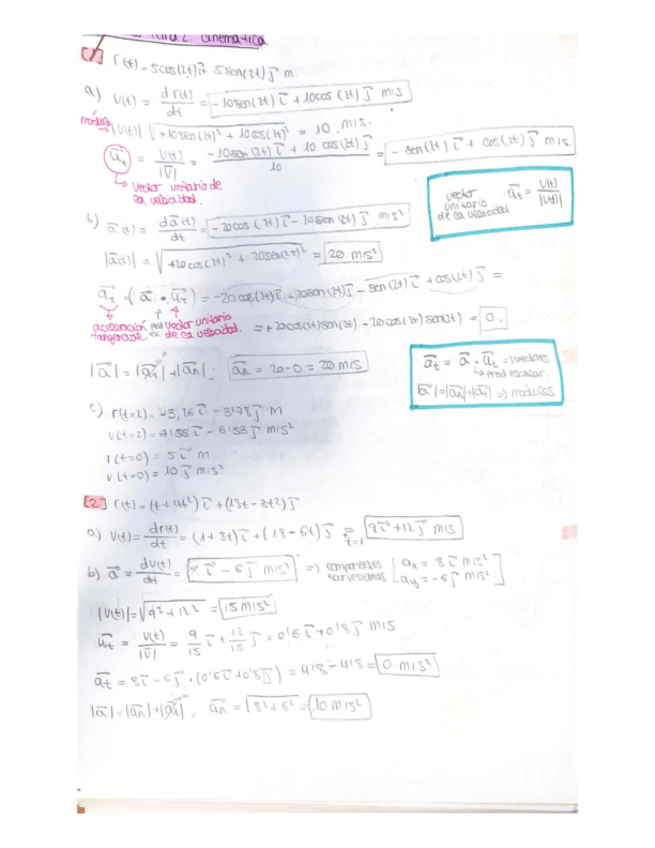 Tema 2. Cinemática
[1] r(t) = 5cos(2t) i + 5sen(2t) j m.
a) v(t) = dr(t)/dt = -10sen(2t) i + 10cos(2t) j m/s
módulo → |v(t)| √+10sen(2t)² + 10cos(2t)² = 10 m/s.
u_t = v(t)/|v| = -10sen(2t) i + 10 cos(2t) j / 10 = - sen(2t) i + cos(2t) j m/s.
↳ vector unitario de la velocidad.
vector unitario de la velocidad u_t = v(t)/|v(t)|
b) a(t) = da(t)/dt = -20cos(2t) i - 20sen(2t) j m/s²
|a(t)| = √+20cos(2t)² + 20sen(2t)² = 20 m/s²
a_t = (a · u_t) = -20cos(2t) i - 20sen(2t) j - sen(2t) i + cos(2t) j =
aceleración tangencial vector unitario de la velocidad. = +20cos(2t)sen(2t) - 20cos(2t)sen(2t) = 0.
|a| = |a_t| + |a_n| ; a_n = 20-0 = 20 m/s
a_t = a · u_t => vectores
↳ Prod escalar.
|a| = |a_n| + |a_t| => módulos
c) r(t=2) = -3,26 i - 3,78 j m
v(t=2) = 7,56 i - 6,53 j m/s²
r(t=0) = 5 i m
v(t=0) = 10 j m/s²
[2] r(t) = (t+4t²) i + (18t-3t²) j
a) v(t) = dr(t)/dt = (1+8t) i + (18-6t) j = t=1 9 i + 12 j m/s
b) a = dv(t)/dt = 8 i - 6 j m/s² => componentes cartesianas [ax = 8 i m/s² ay = -6 j m/s² ]
|v(t)| = √9² + 12² = 15 m/s²
u_t = v(t)/|v| = 9/15 i + 12/15 j = 0'6 i + 0'8 j m/s
a_t = 8 i - 6 j · (0'6 i + 0'8 j) = 4'8 - 4'8 = 0 m/s²
|a| = |a_n| + |a_t| ; a_n = √8² + 6² = 10 m/s²